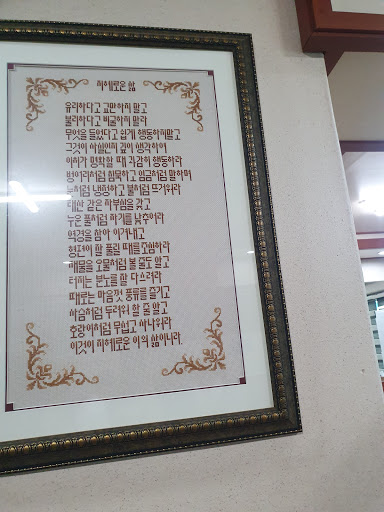 지혜로운 삶
유리하다고 교만하지 말고
불리하다고 비굴하지 말라
무엇을 들었다고 쉽게 행동하지말고
그것이 사실인지 깊이 생각하여
이치가 명확할 때 과감히 행동하라
벙어리처럼 침묵하고 임금처럼 말하며
눈처럼 냉정하고 불처럼 뜨거워라
태산 같은 자부심을 갖고
누운 풀처럼 자기를 낮추어라
역경을 참아 이겨내고
형편이 잘 풀릴 때를 조심하라
재물을 오물처럼 볼 줄도 알고
터지는 분노를 잘 다스려라
때로는 마음껏 풍류를 즐기고
사슴처럼 두려워 할 줄 알고
호랑이처럼 무섭고 사나워라
이것이 지혜로운 이의 삶이니라.